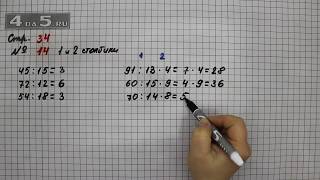 4DA5.RU
Стр. 34
№ 14 1 и 2 столбики
1 2
45 : 15 = 3
72 : 12 = 6
54 : 18 = 3
91 : 13 · 4 = 7 · 4 = 28
60 : 15 · 9 = 4 · 9 = 36
70 : 14 · 8 = 5